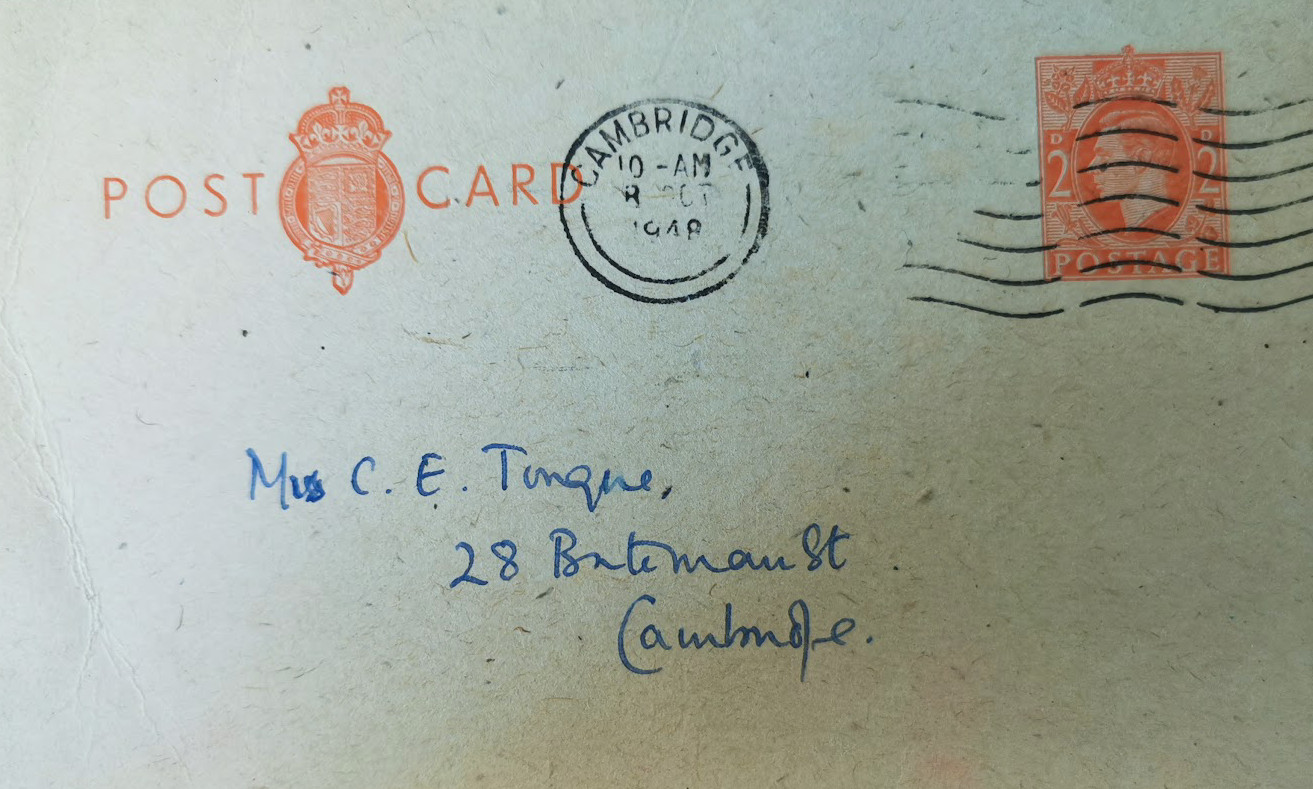 POST CARD
CAMBRIDGE
10-AM
8 OCT
1948
2D 2D
POSTAGE
Miss C. E. Tongue,
28 Bateman St
Cambridge.